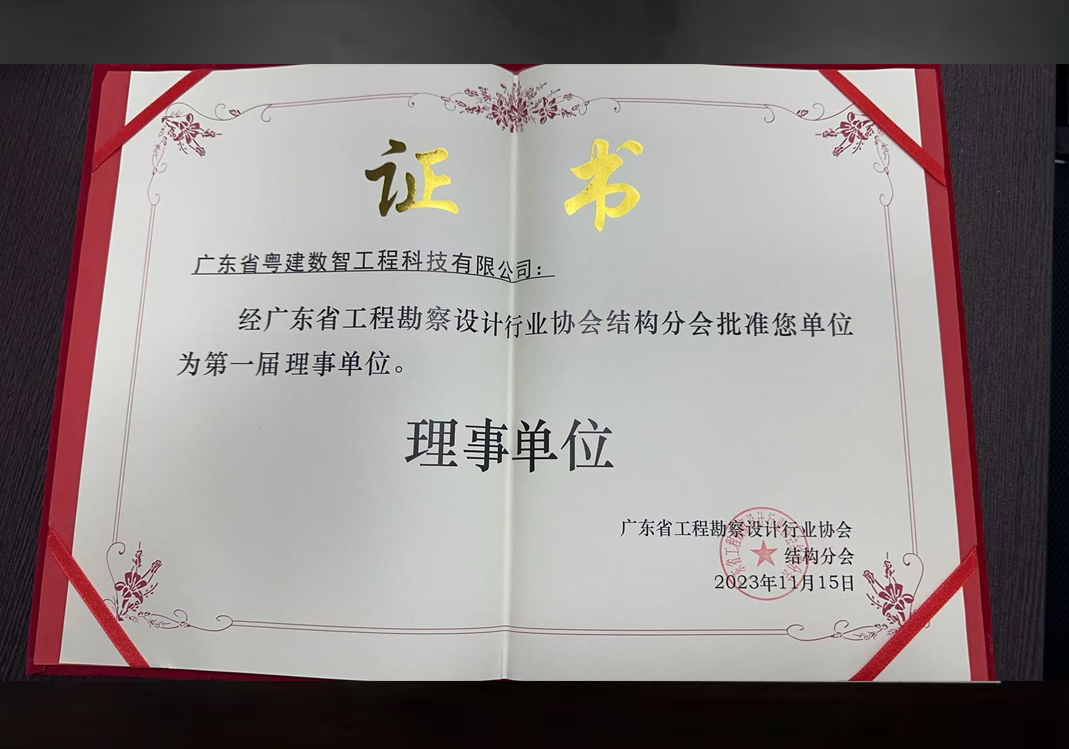 证 书
广东省粤建数智工程科技有限公司：
经广东省工程勘察设计行业协会结构分会批准您单位
为第一届理事单位。
理事单位
广东省工程勘察设计行业协会
结构分会
2023年11月15日